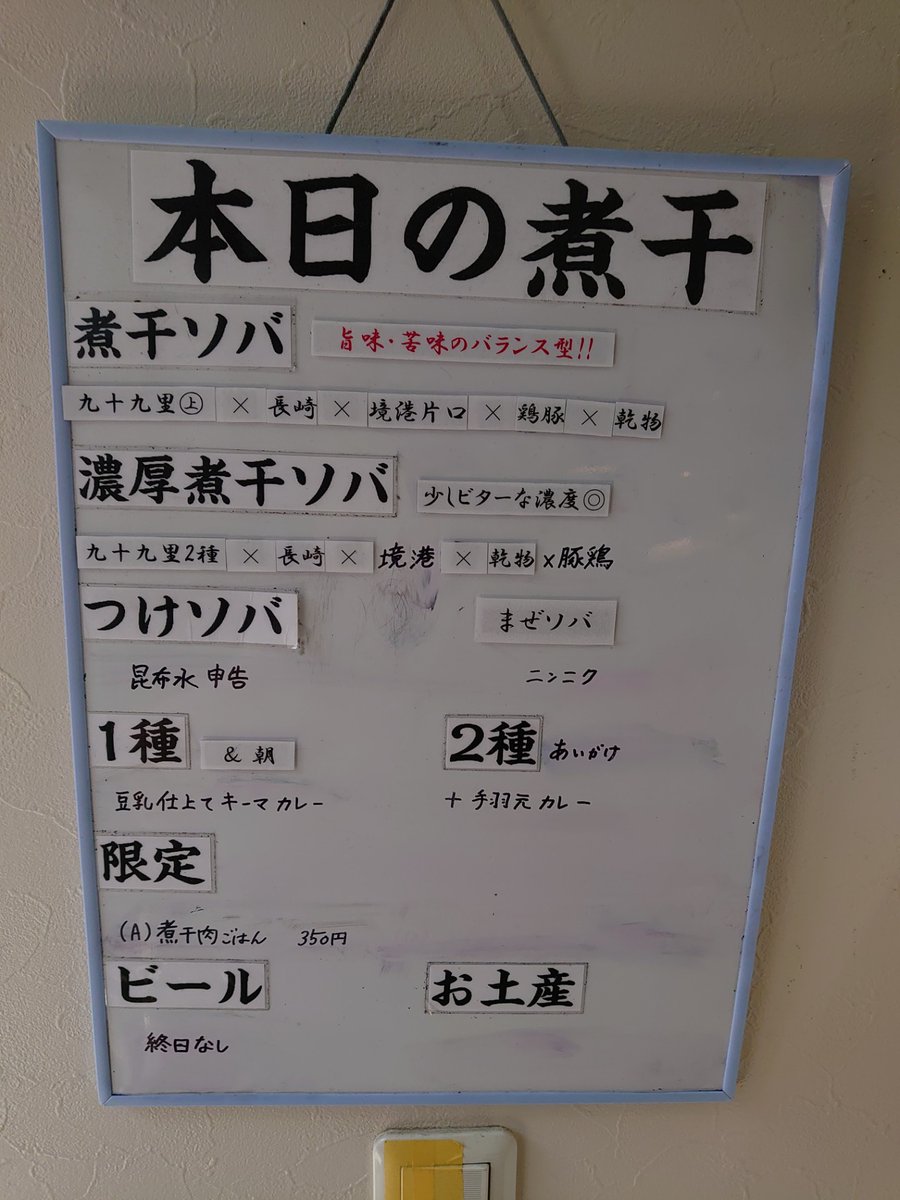 本日の煮干
煮干ソバ 旨味・苦味のバランス型!!
九十九里㊤ × 長崎 × 境港片口 × 鶏豚 × 乾物
濃厚煮干ソバ 少しビターな濃度◎
九十九里2種 × 長崎 × 境港 × 乾物 × 豚鶏
つけソバ まぜソバ
昆布水 申告 ニンニク
1種 & 朝 2種 あいがけ
豆乳仕上てキーマカレー + 手羽元カレー
限定
(A)煮干肉ごはん 350円
ビール お土産
終日なし